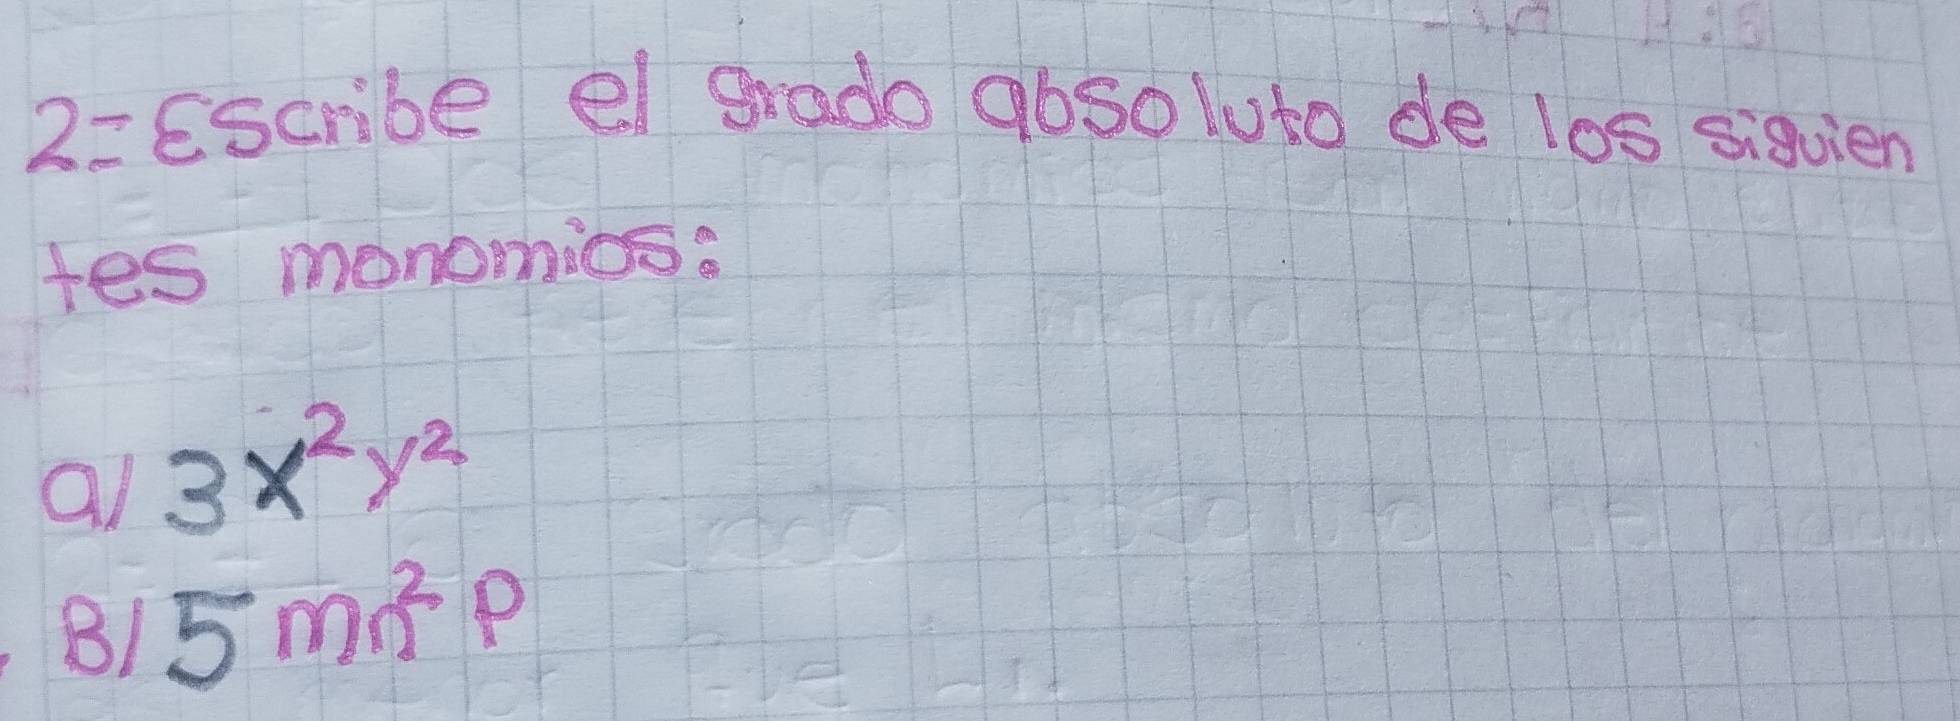 2= Escribe el grado absoluto de los siguien
tes monomios:
a/ 3x²y²
B/ 5mn²p